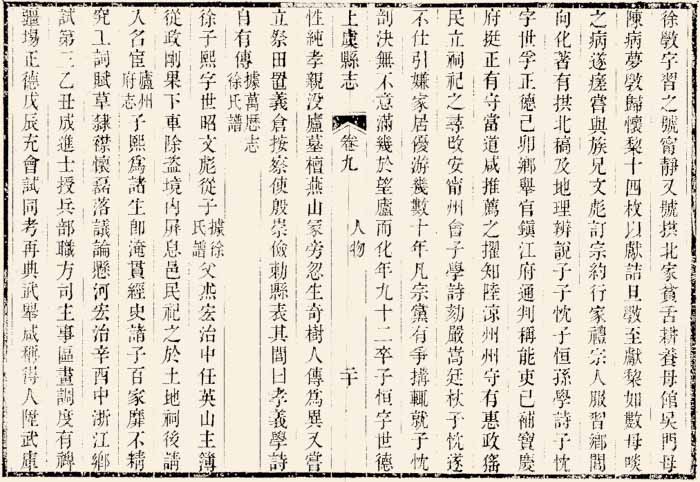 徐斆字習之號甯靜又號拱北家貧舌耕養母館吳門母
陳病夢斆歸懷棃十四枚以獻詰旦斆至獻棃如數母啖
之病遂瘥嘗與族兄文彪訂宗約行家禮宗人服習鄉閭
向化著有拱北稿及地理辨說子子忱子恒孫學詩子忱
字世孚正德己卯鄉舉官鎮江府通判稱能吏已補寶慶
府挺正有守當道咸推薦之擢知陸涼州州守有惠政猺
民立祠祀之尋改安甯州會子學詩劾嚴嵩廷杖子忱遂
不仕引嫌家居優游幾數十年凡宗黨有爭搆輒就子忱
剖決無不意滿幾於望廬而化年九十二卒子恒字世德
上虞縣志 卷九 人物 二十
性純孝親没廬墓檀燕山冢旁忽生奇樹人傳爲異又嘗
立祭田置義倉按察使殷崇儉勅縣表其閭曰孝義學詩
自有傳據萬厯志徐氏譜
徐子熙字世昭文彪從子據徐氏譜父熹宏治中任英山主簿
從政剛果下車除盜境内屏息邑民祀之於土地祠後請
入名宦廬州府志子熙爲諸生卽淹貫經史諸子百家靡不精
究工詞賦草隸襟懷磊落議論懸河宏治辛酉中浙江鄉
試第二乙丑成進士授兵部職方司主事區畫調度有裨
疆埸正德戊辰充會試同考再典武舉咸稱得人陞武庫